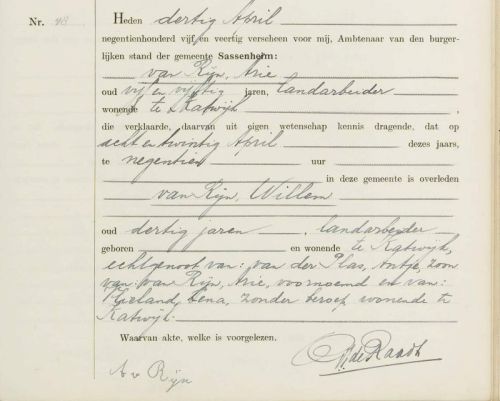 Nr. 48
Heden dertig April
negentienhonderd vijf en veertig verscheen voor mij, Ambtenaar van den burger-
lijken stand der gemeente Sassenheim:
van Rijn, Arie
oud vijf en vijftig jaren, landarbeider
wonende te Katwijk,
die verklaarde, daarvan uit eigen wetenschap kennis dragende, dat op
acht en twintig April dezes jaars,
te negentien uur
in deze gemeente is overleden
van Rijn, Willem
oud dertig jaren, landarbeider
geboren en wonende te Katwijk,
echtgenoot van: van der Plas, Antje, zoon
van: van Rijn, Arie, voornoemd en van:
Lena, zonder beroep wonende te
Katwijk.
Waarvan akte, welke is voorgelezen.
de Raadt
A v Rijn